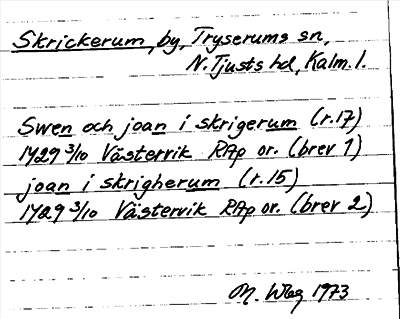 Skrickerum, by, Tryserums sn,
N. Tjusts hd, Kalm. l.
Swen och joan i skrigerum (r.17)
1429 3/10 Västervik RAp or. (brev 1)
joan i skrigherum (r.15)
1429 3/10 Västervik RAp or. (brev 2)
M. Wbg 1973